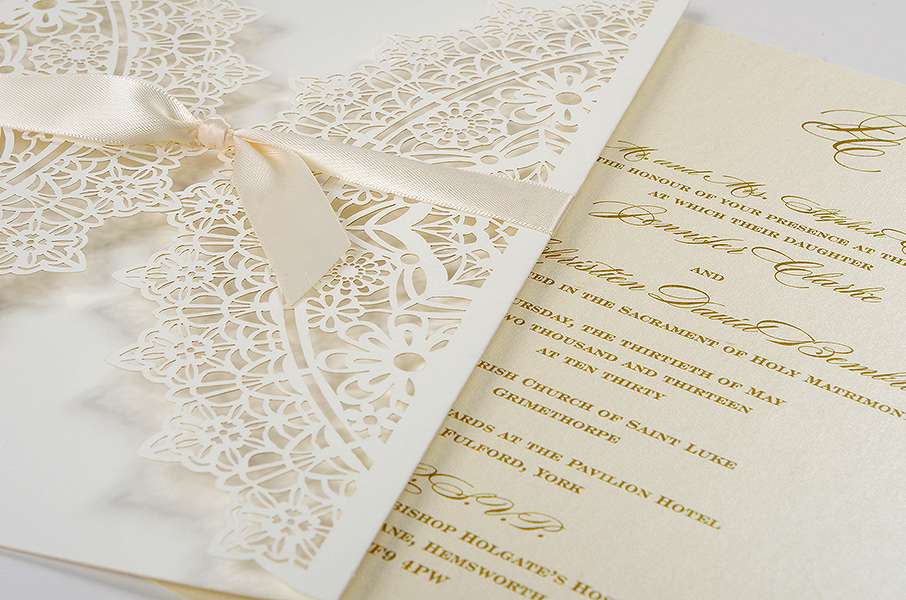 M. and Mrs. Stephen
THE HONOUR OF YOUR PRESENCE AT THE
AT WHICH THEIR DAUGHTER
Jennifer Clarke
AND
Christian David
IN THE SACRAMENT OF HOLY MATRIMON
THE THIRTIETH OF MAY
THOUSAND AND THIRTEEN
AT TEN THIRTY
CHURCH OF SAINT LUKE
GRIMETHORPE
AT THE PAVILION HOTEL
FULFORD, YORK
R.S.V.P.
BISHOP HOLGATE'S
HEMSWORTH
4PW